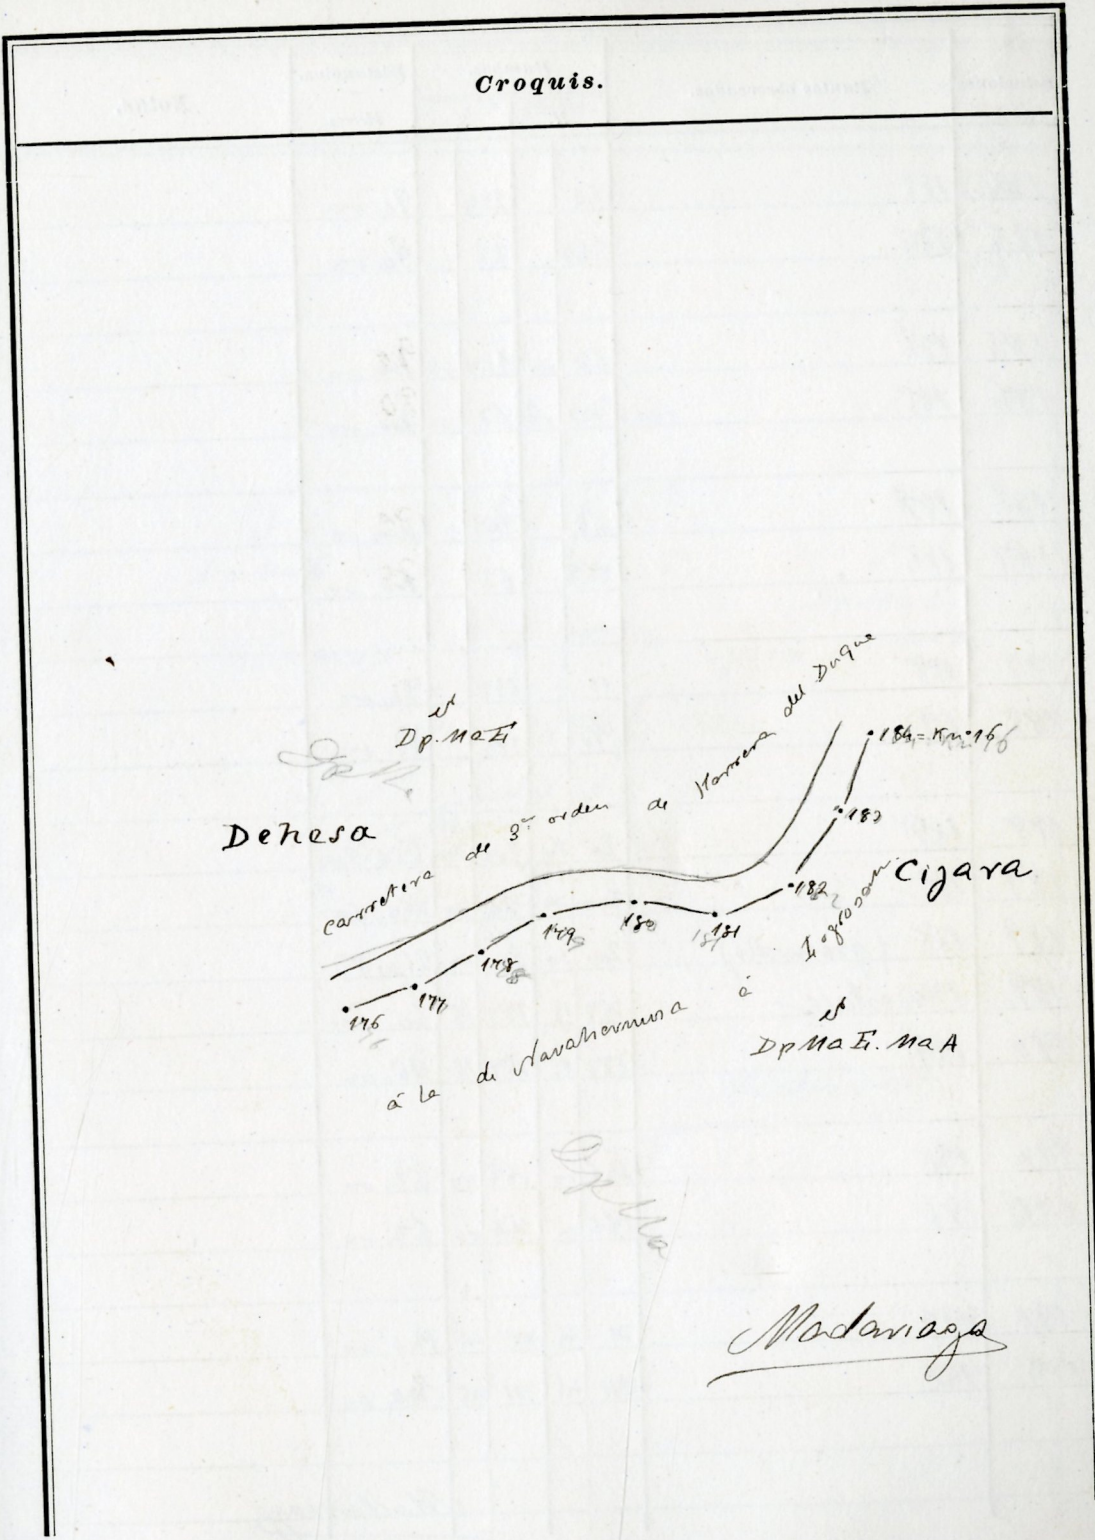 Croquis.
Dp. Ma E
Dehesa
Carretera de 3er orden de Herrera del Duque
184 = Km. 16
183
Cijara
182
181
180
179
178
177
176
á la de Navahermosa á Logrosan
Dp Ma E. Ma A
Dp Ma
Madariaga